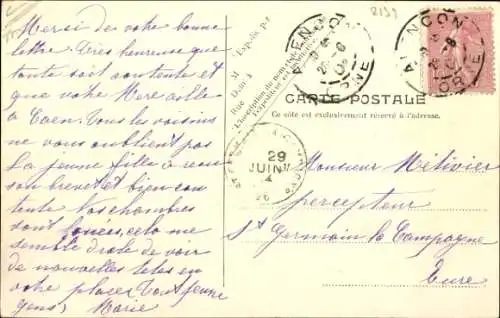 Merci de votre bonne
lettre. Très heureuse que
tante soit contente et
que votre Mère aille
à Caen. Tous les voisins
ne vous oublient pas
La jeune fille a reçu
son brevet et bien con
tente Vos chambres
sont louées, cela me
semble drôle de voir
de nouvelles têtes en
votre place. Tout jeune
gens, Marie
2139
M
Rue
CARTE POSTALE
Ce côté est exclusivement réservé à l'adresse.
ALENÇON
ORNE
ALENÇON
ORNE
29
JUIN
Monsieur Métivier
percepteur
St Germain la Campagne
Eure